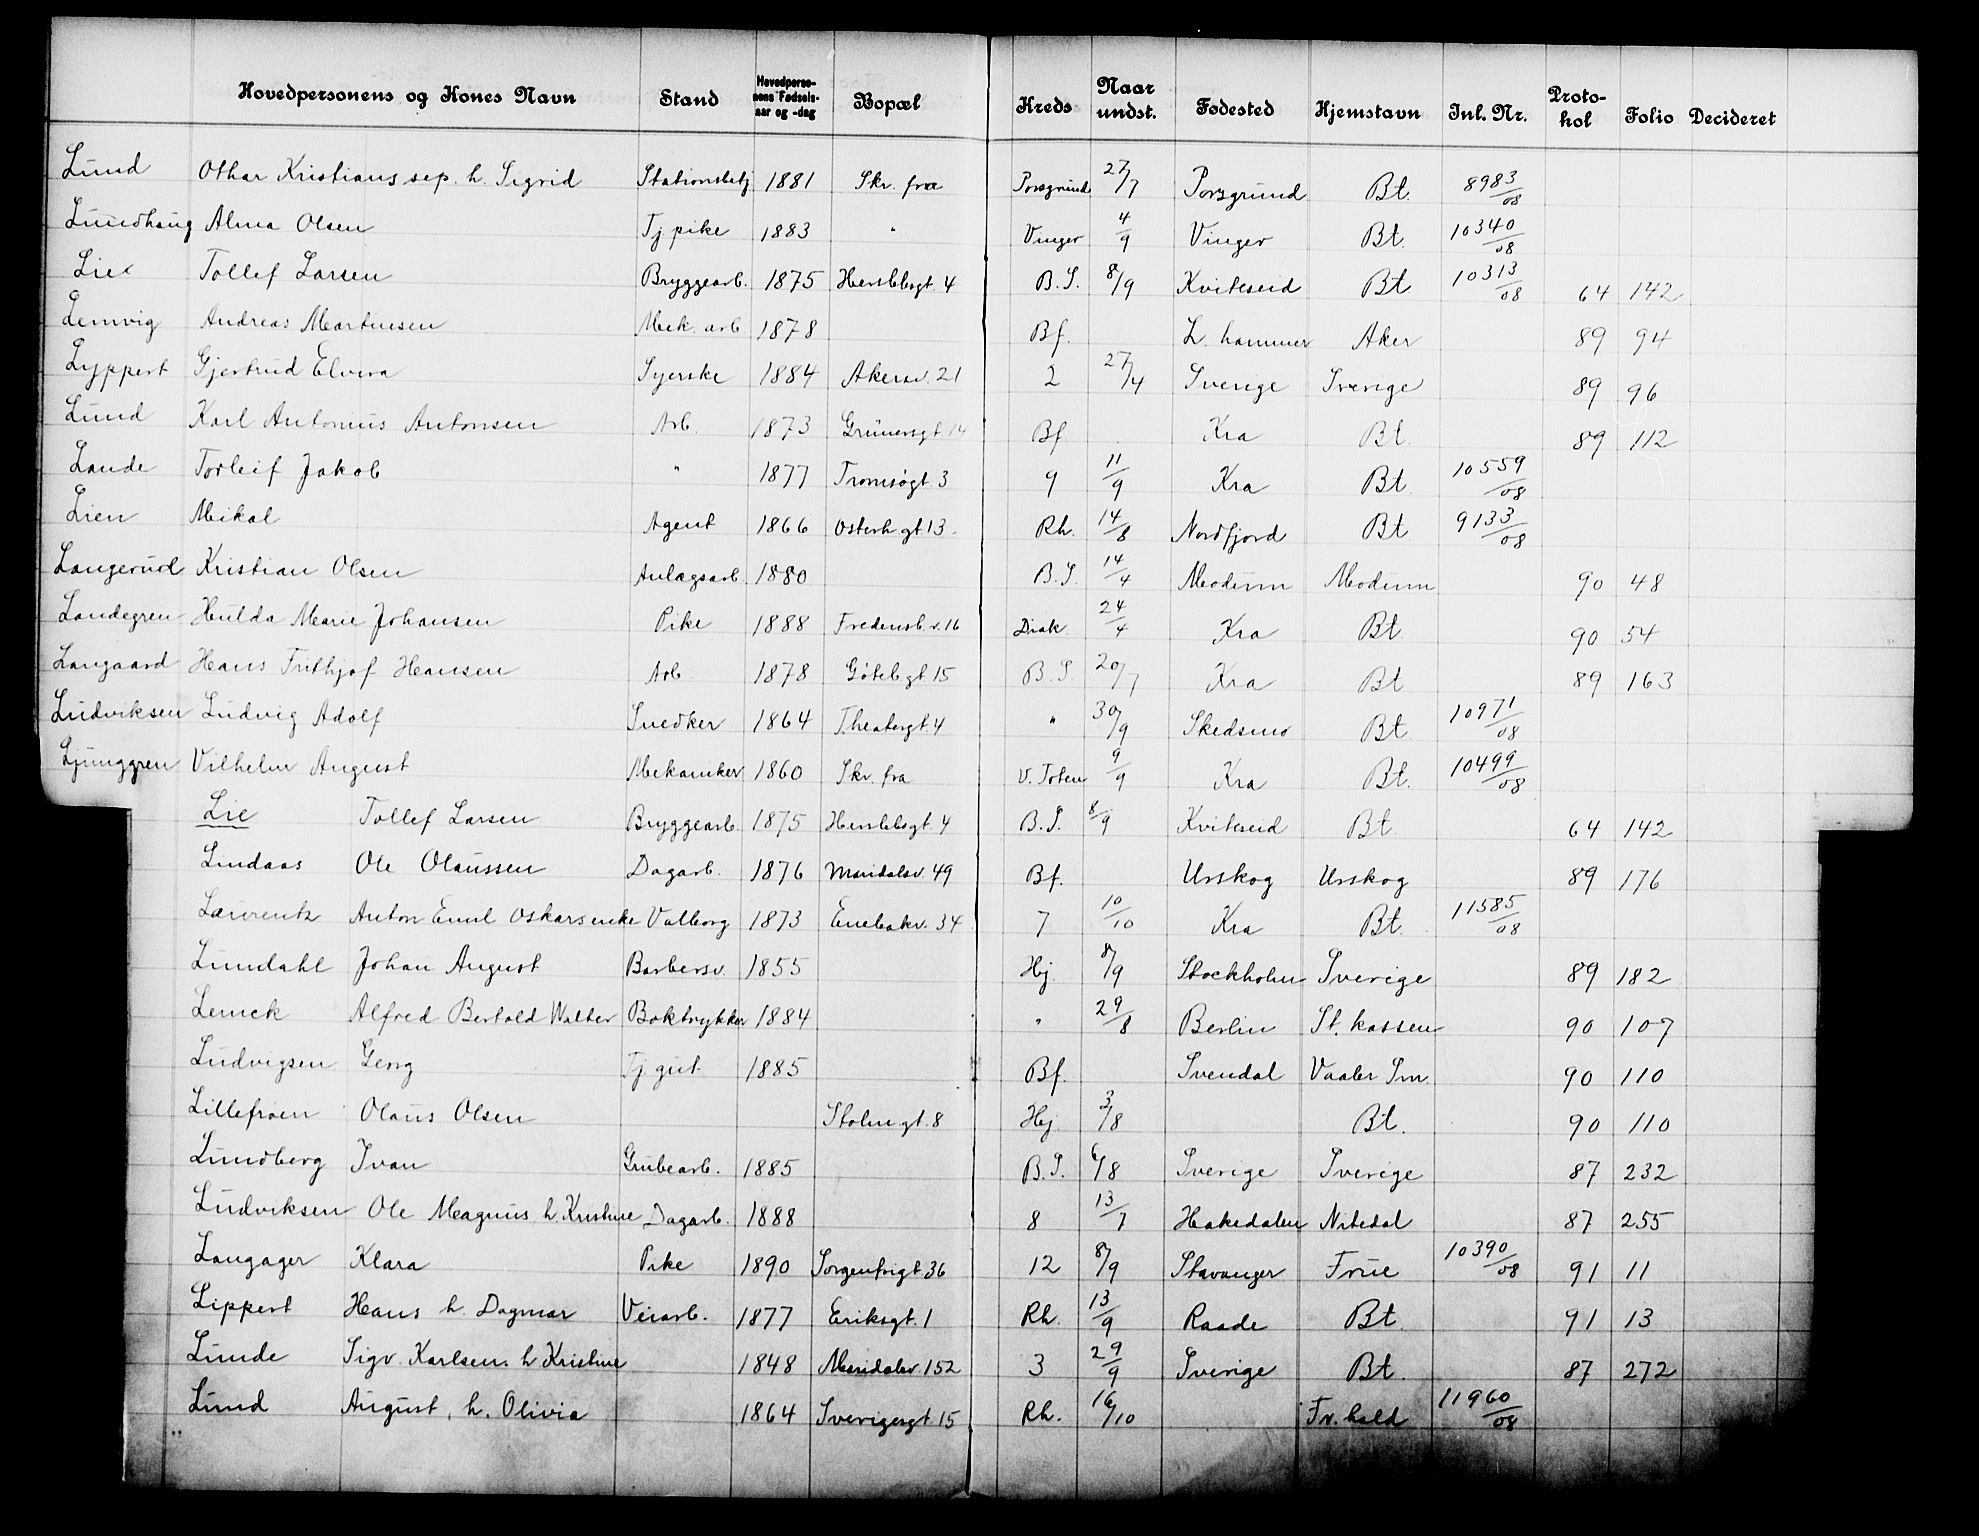 Hovedpersonens og Kones Navn Stand Hovedpersonens Fødsels-aar og -dag Bopæl Kreds Naar undst. Fødested Hjemstavn Inl. Nr. Proto-kol Folio Decideret
Lund Othar Kristians sep. h. Sigrid Stationsbetj 1881 Skr. fra Porsgrund 27/7 Porsgrund Bt. 8983/08
Lundhaug Alma Olsen Tj. pike 1883 " Vinger 4/9 Vinger Bt. 10340/08
Lie Tollef Larsen Bryggearb. 1875 Herslebsgt. 4 B.S. 8/9 Kviteseid Bt 10313/08 64 142
Lemvig Andreas Martinsen Mek. arb 1878 Bf. L. hammer Aker 89 94
Lyppert Gjertrud Elvira Syerske 1884 Akersv. 21 2 27/4 Sverige Sverige 89 96
Lund Karl Antonius Antonsen Arb. 1873 Grünersgt 14 Bf. Kra Bt. 89 112
Lande Torleif Jakob " 1877 Tromsøgt. 3 9 11/9 Kra Bt. 10559/08
Lien Mikal Agent 1866 Osterh.gt 13. Rh. 14/8 Nordfjord Bt 9133/08
Langerud Kristian Olsen Anlægsarb. 1880 B.S. 14/4 Modum Modum 90 48
Landegren Hulda Marie Johansen Pike 1888 Fredensb.v. 16 Diak. 24/4 Kra Bt. 90 54
Langaard Hans Frithjof Hansen Arb. 1878 Gøteb.gt 15 B.S. 20/7 Kra Bt 89 163
Ludviksen Ludvig Adolf Snedker 1864 Theatergt. 4 " 30/9 Skedsmo Bt. 10971/08
Ljunggren Vilhelm August Mekaniker 1860 Skr. fra V. Toten 9/9 Kra Bt. 10499/08
Lie Tollef Larsen Bryggearb. 1875 Herslebsgt. 4 B.S. 8/9 Kviteseid Bt. 64 142
Lindaas Ole Olaussen Dagarb. 1876 Maridalsv. 49 Bf. Urskog Urskog 89 176
Laurentz Anton Emil Oskars enke Valborg 1873 Enebakv. 34 7 10/10 Kra Bt. 11585/08
Lundahl Johan August Barbersv. 1855 Hj. 8/9 Stockholm Sverige 89 182
Lenck Alfred Bertold Walter Boktrykker 1884 " 29/8 Berlin St. kassen 90 107
Ludvigsen Georg Tj. gut 1885 Bf. Svendal Vaaler Sm. 90 110
Lillefroen Olaus Olsen Stolm.gt. 8 Hj. 3/8 Bt. 90 110
Lundberg Ivan Grubearb. 1885 B.S. 6/8 Sverige Sverige 87 232
Ludviksen Ole Magnus h. Kristine Dagarb. 1888 8 13/7 Hakedalen Nitedal 87 255
Langager Klara Pike 1890 Sorgenfrigt 36 12 8/9 Stavanger Frue 10390/08 91 11
Lippert Hans h. Dagmar Veiarb. 1877 Eriksgt. 1 Rh. 13/9 Raade Bt. 91 13
Lunde Sigv. Karlsen h Kristine 1848 Maridalsv. 152 3 29/9 Sverige Bt. 87 272
Lund August, h. Olivia 1864 Sverigesgt. 15 Rh. 16/10 Fr. hald 11960/08